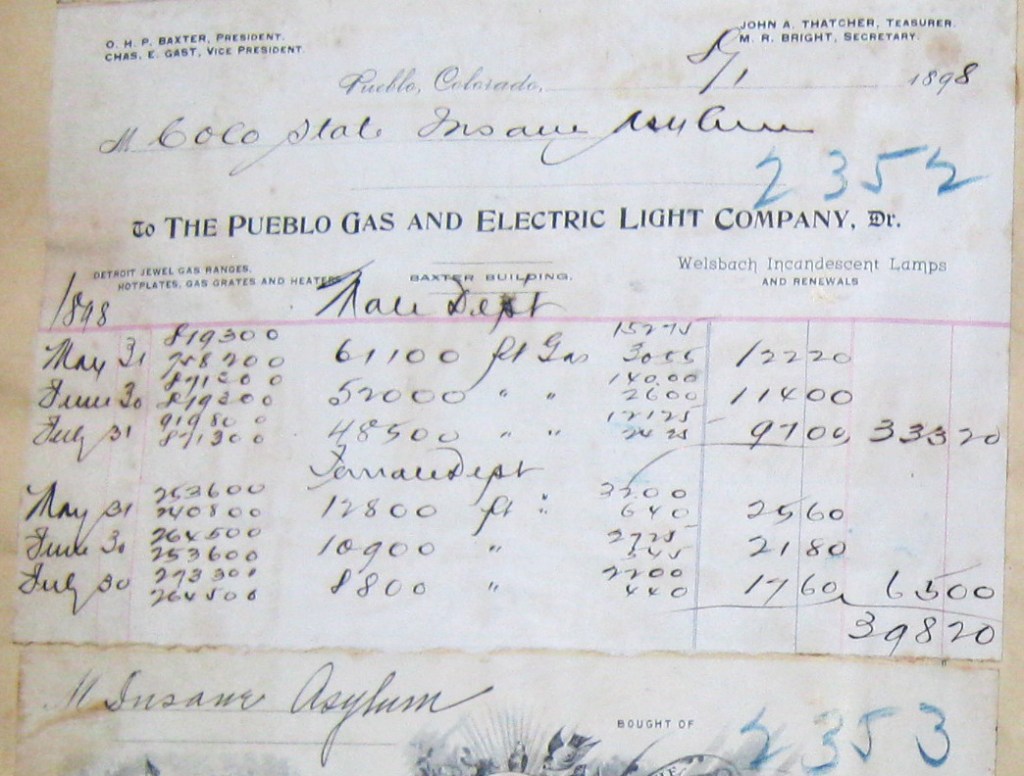 O. H. P. BAXTER, PRESIDENT.
CHAS. E. GAST, VICE PRESIDENT.
JOHN A. THATCHER, TEASURER.
M. R. BRIGHT, SECRETARY.
Pueblo, Colorado, 8/1 1898
M Colo State Insane Asylum
2352
To THE PUEBLO GAS AND ELECTRIC LIGHT COMPANY, Dr.
DETROIT JEWEL GAS RANGES,
HOTPLATES, GAS GRATES AND HEATERS
BAXTER BUILDING.
Welsbach Incandescent Lamps
AND RENEWALS
1898 Male Dept
819300 15275
May 31 758200 61100 ft Gas 3055 12220
871300 14000
June 30 819300 52000 " " 2600 11400
919800 12125
July 31 871300 48500 " " 2425 9700 33320
Female Dept
253600 3200
May 31 240800 12800 ft " 640 2560
264500 2725
June 30 253600 10900 " 545 2180
273300 2200
July 30 264500 8800 " 440 1760 6500
39820
M Insane Asylum
BOUGHT OF
2353